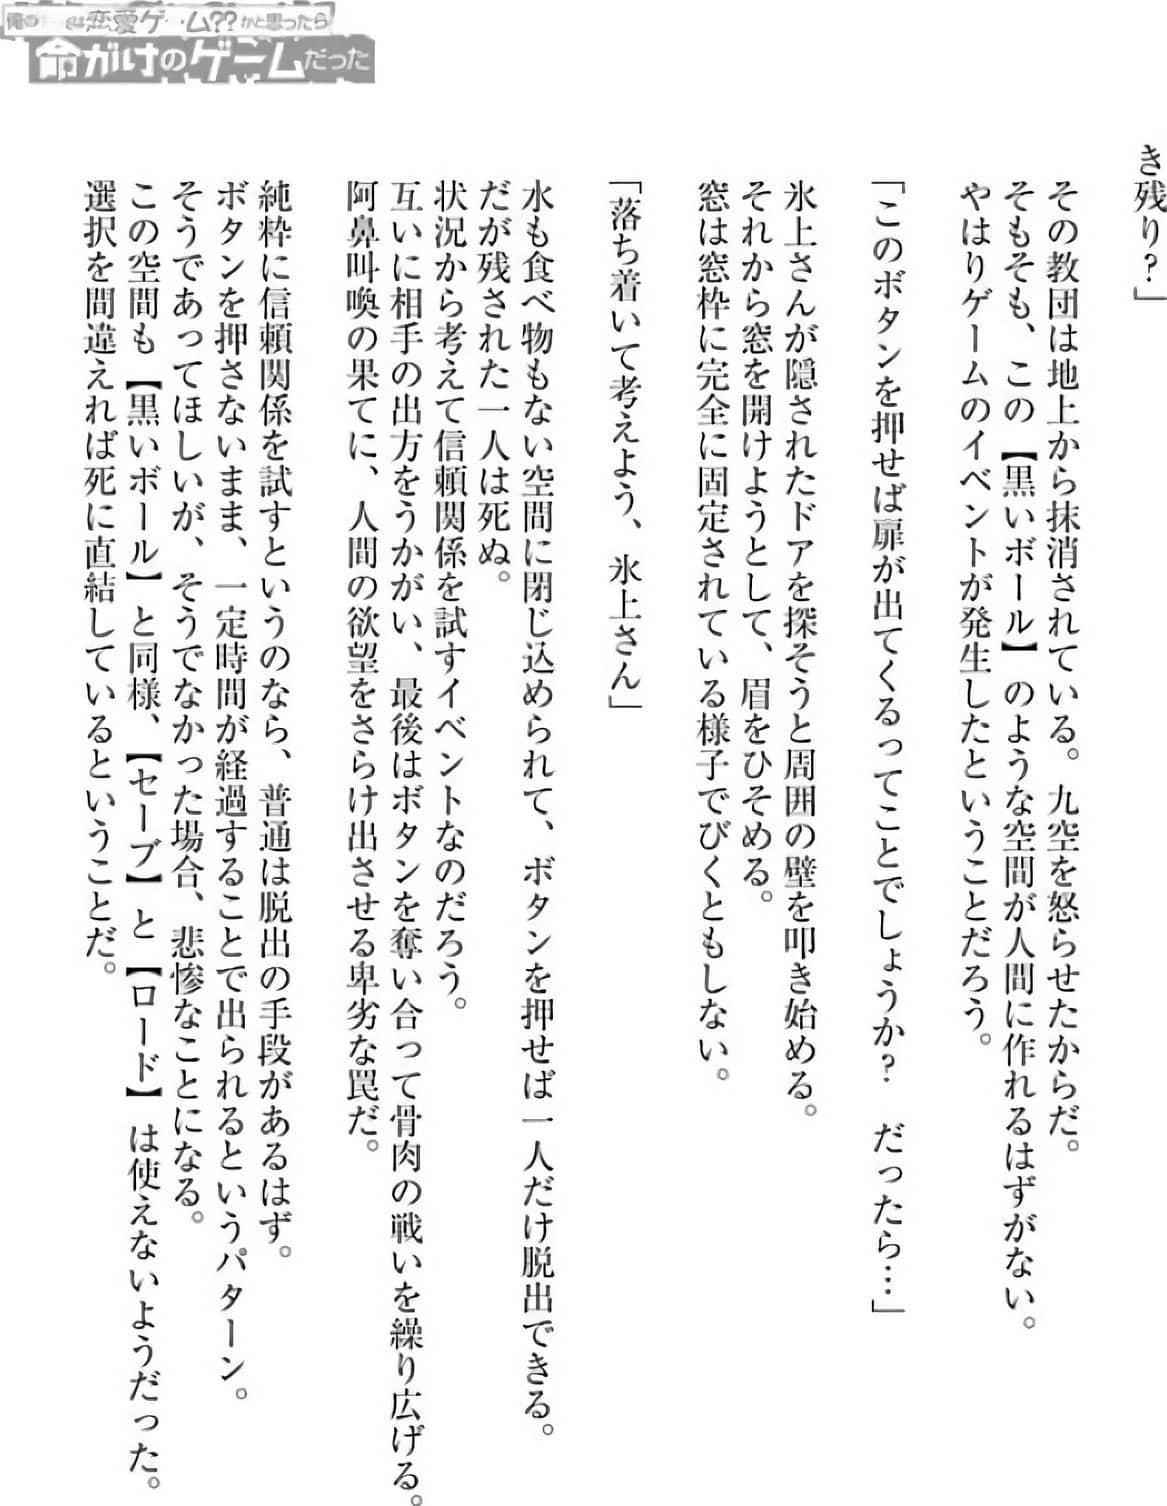 俺の
は恋愛ゲーム??かと思ったら
命がけのゲームだった
き残り？」
その教団は地上から抹消されている。九空を怒らせたからだ。
そもそも、この【黒いボール】のような空間が人間に作れるはずがない。
やはりゲームのイベントが発生したということだろう。
「このボタンを押せば扉が出てくるってことでしょうか？　だったら…」
氷上さんが隠されたドアを探そうと周囲の壁を叩き始める。
それから窓を開けようとして、眉をひそめる。
窓は窓枠に完全に固定されている様子でびくともしない。
「落ち着いて考えよう、氷上さん」
水も食べ物もない空間に閉じ込められて、ボタンを押せば一人だけ脱出できる。
だが残された一人は死ぬ。
状況から考えて信頼関係を試すイベントなのだろう。
互いに相手の出方をうかがい、最後はボタンを奪い合って骨肉の戦いを繰り広げる。
阿鼻叫喚の果てに、人間の欲望をさらけ出させる卑劣な罠だ。
純粋に信頼関係を試すというのなら、普通は脱出の手段があるはず。
ボタンを押さないまま、一定時間が経過することで出られるというパターン。
そうであってほしいが、そうでなかった場合、悲惨なことになる。
この空間も【黒いボール】と同様、【セーブ】と【ロード】は使えないようだった。
選択を間違えれば死に直結しているということだ。